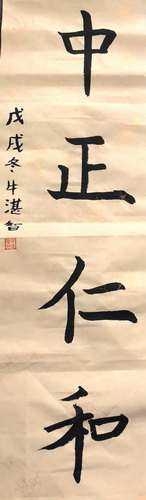 中正仁和
戊戌冬牛湛智